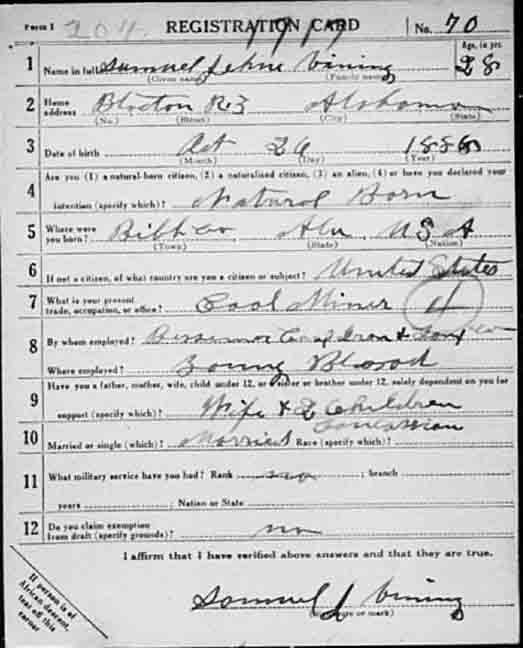 Form 1 204 REGISTRATION CARD No. 70
1917
Age, in yrs.
1 Name in full Samuel Vining 28
(Given name) (Family name)
2 Home address Blocton R3 Alabama
(No.) (Street) (City) (State)
3 Date of birth Oct 26 188
(Month) (Day) (Year)
Are you (1) a natural-born citizen, (2) a naturalized citizen, (3) an alien, (4) or have you declared your
4 intention (specify which)? Natural Born
5 Where were you born? Bibb Co Ala U S A
(Town) (State) (Nation)
6 If not a citizen, of what country are you a citizen or subject? United States
7 What is your present trade, occupation, or office? Coal Miner 4
8 By whom employed? Bessemer Iron &
Where employed? Young Blood
Have you a father, mother, wife, child under 12, or a sister or brother under 12, solely dependent on you for
9 support (specify which)? Wife & 2 Children
10 Married or single (which)? Married Race (specify which)? Caucassian
11 What military service have you had? Rank no ; branch
years ; Nation or State
12 Do you claim exemption from draft (specify grounds)? no
I affirm that I have verified above answers and that they are true.
If person is of
African descent,
tear off this
corner
Samuel J Vining
(Signature or mark)